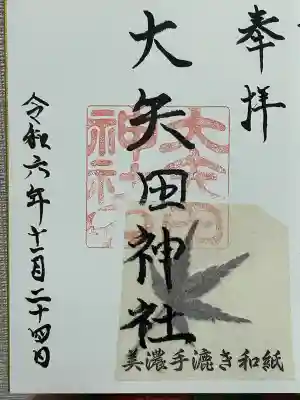 奉拝
大矢田神社
大矢田
神社
令和六年十一月二十四日
美濃手漉き和紙